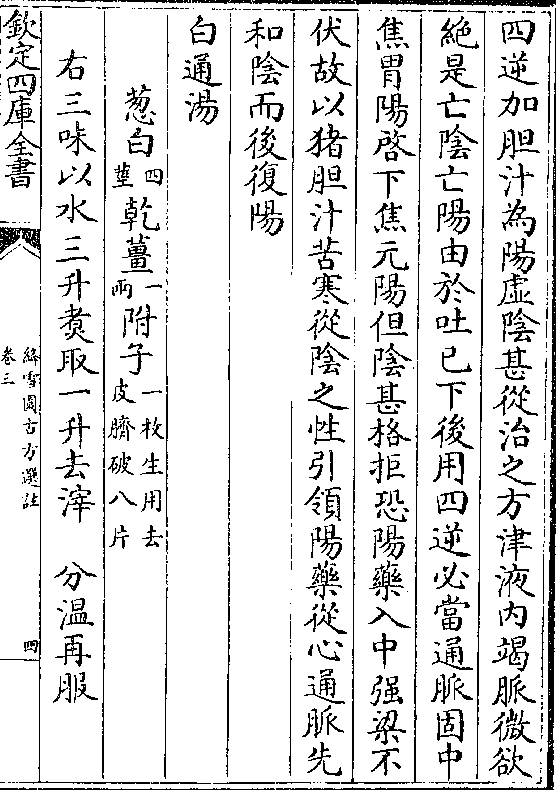 四逆加胆汁為陽虛陰甚從治之方津液内竭脈微欲
絶是亡陰亡陽由於吐已下後用四逆必當通脈固中
焦胃陽啓下焦元陽但陰甚格拒恐陽藥入中强梁不
伏故以猪胆汁苦寒從陰之性引領陽藥從心通脈先
和陰而後復陽
白通湯
葱白四莖乾薑一兩附子一枚生用去皮臍破八片
右三味以水三升煑取一升去滓　分温再服
欽定四庫全書
絳雪園古方選註
卷三
四